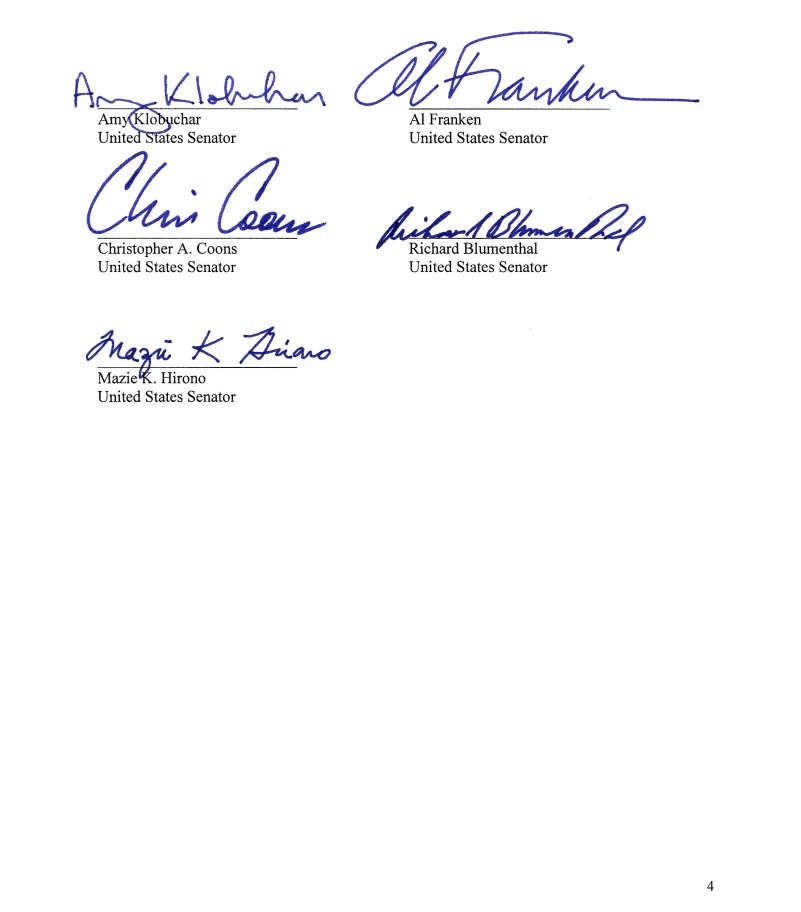 Amy Klobuchar
Al Franken
Amy Klobuchar
Al Franken
United States Senator
United States Senator
Chris Coons
Richard Blumenthal
Christopher A. Coons
Richard Blumenthal
United States Senator
United States Senator
Mazie K Hirono
Mazie K. Hirono
United States Senator
4